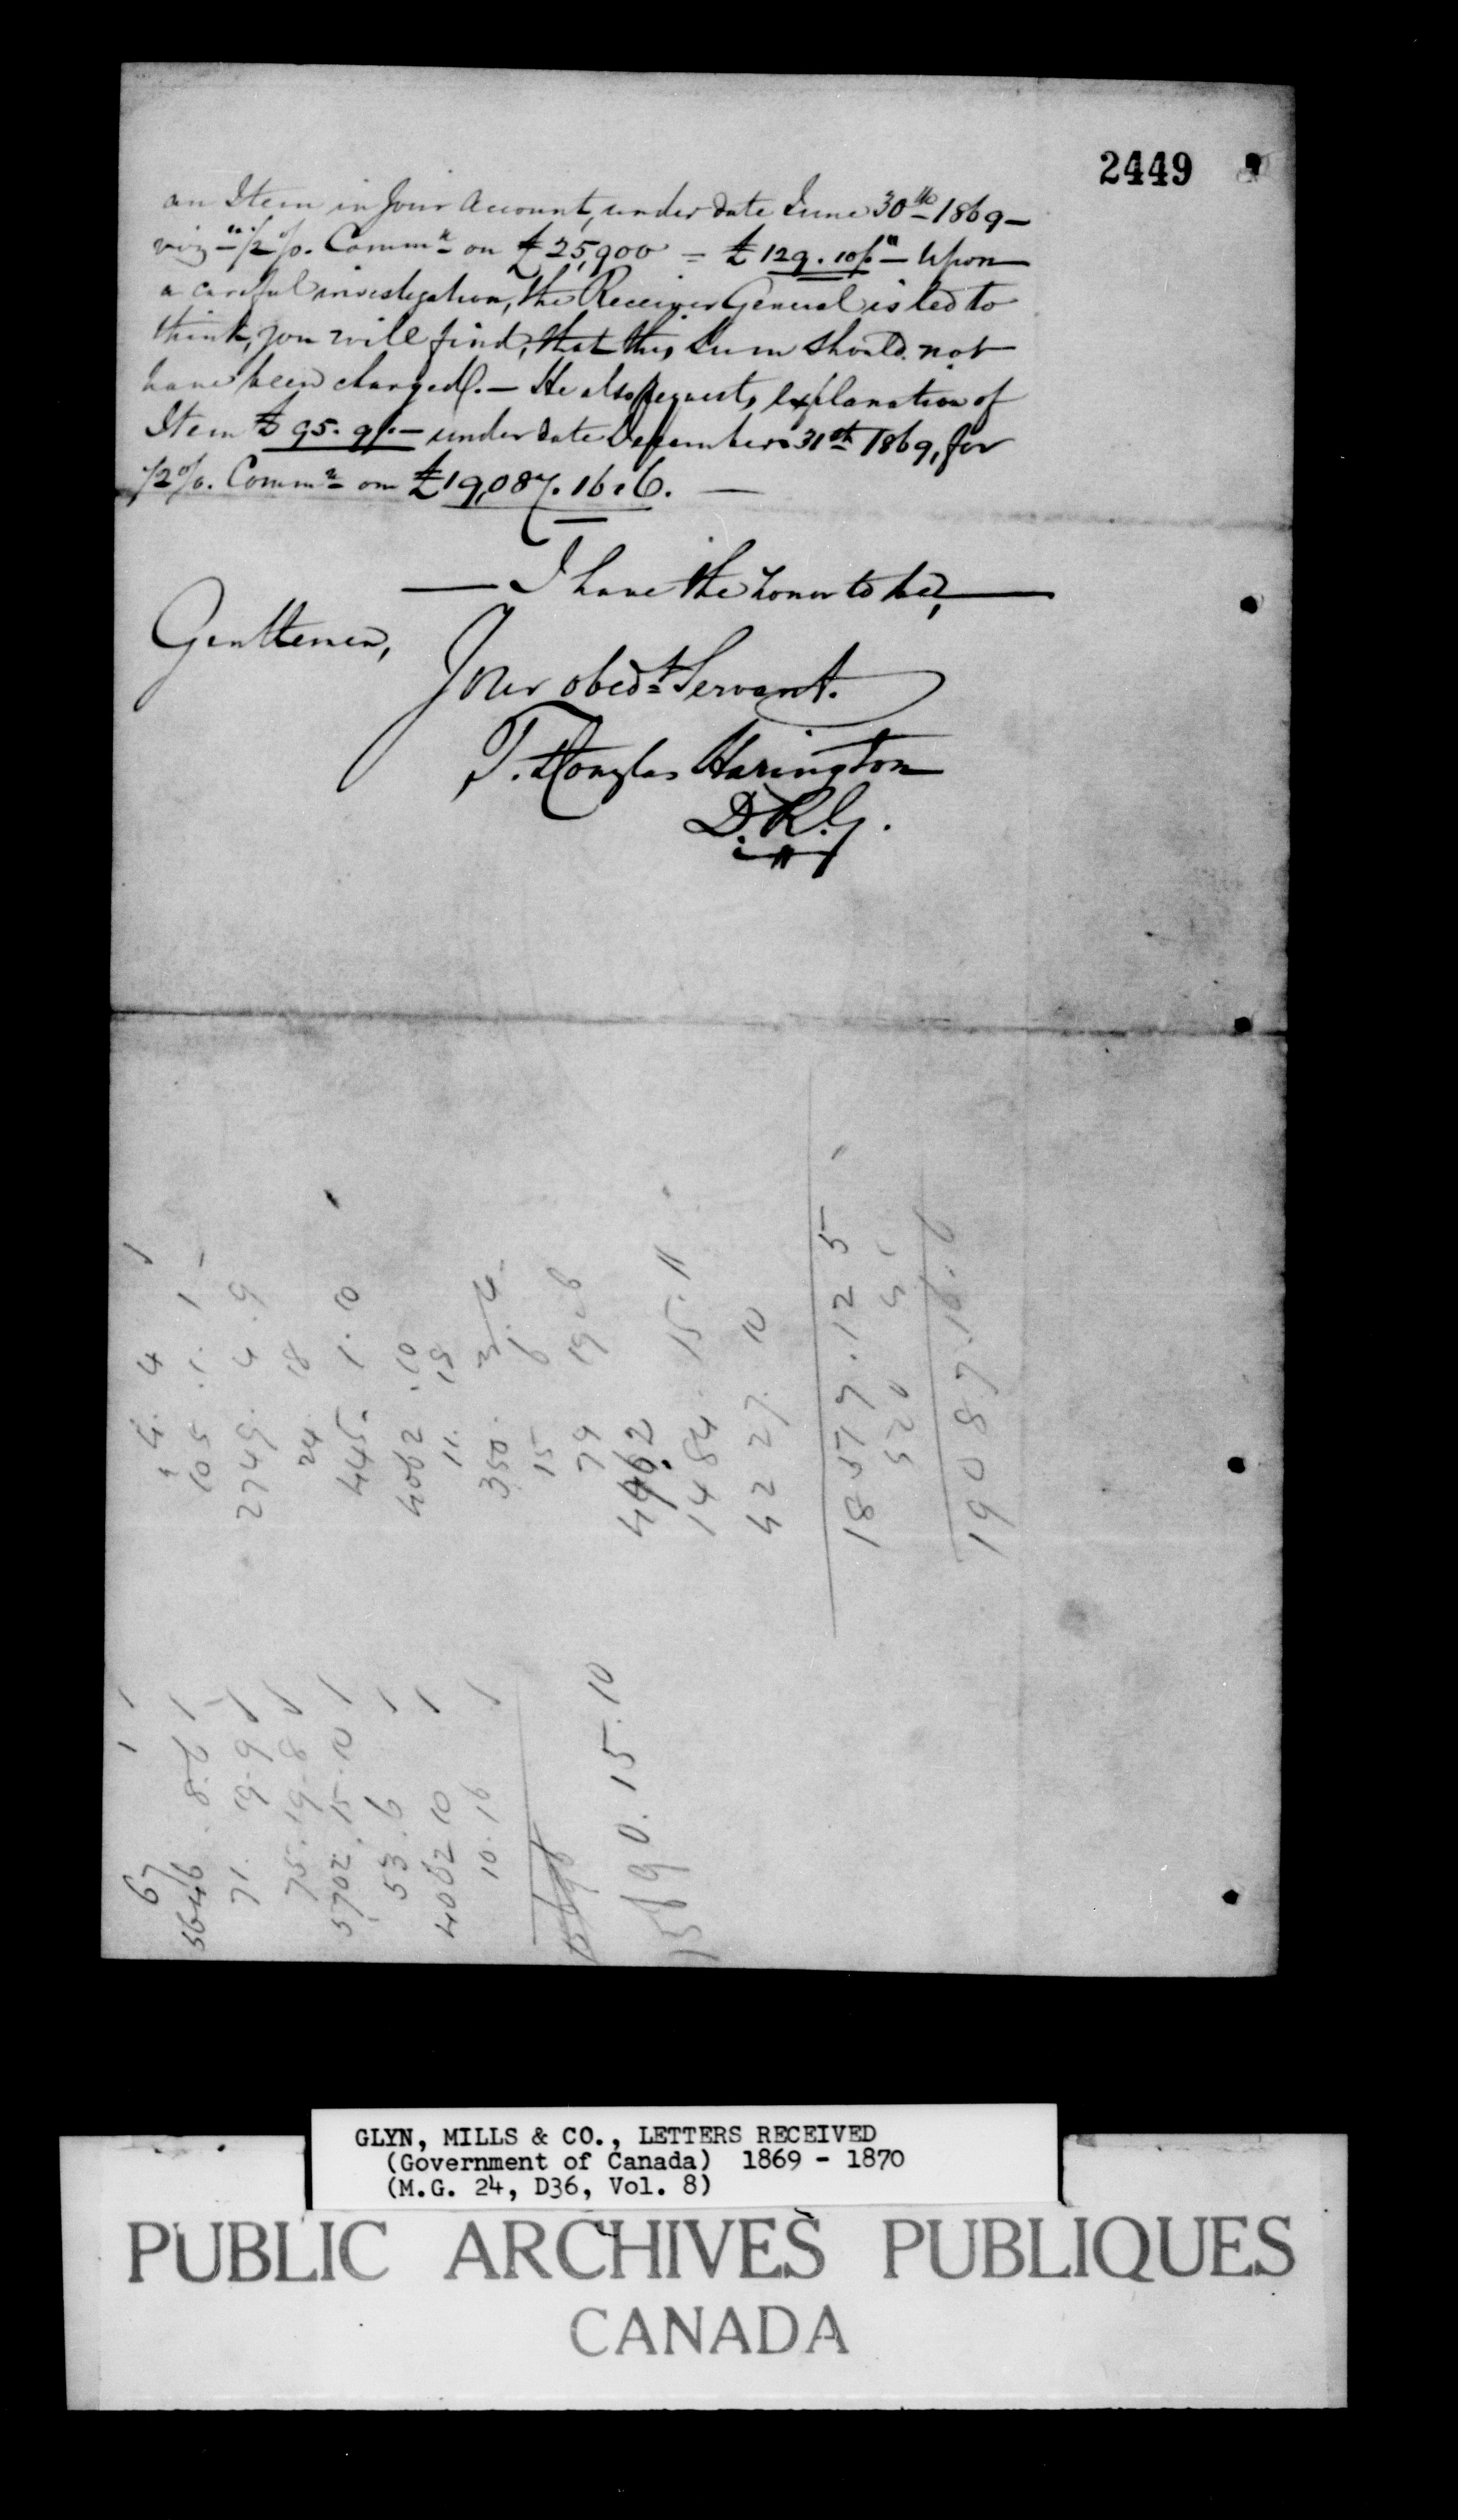 2449
an Item in your Account, under date June 30th 1869 —
viz — "½ %. Commn on £25,900 = £129.10/-" — Upon
a careful investigation, the Receiver General is led to
think, you will find, that this Sum should not
have been charged. — He also requests explanation of
Item £95.9/- — under date December 31st 1869, for
½ %. Commn on £19,087.16.6. —
— I have the honor to be, —
Gentlemen,
Your obedt Servant.
T. Douglas Harington
D.R.G.
105.1.1
2749.4.9
24.18
445.1.10
4062.10
11.19
350.
15 6
79 19.6
4962
1484.15.11
4227.10
18579.12.5
19087.16.6
67
5646.8.6
71.19.9
75.19.8
5702.15.10
53.6
4062 10
10.16
15690.15.10
GLYN, MILLS & CO., LETTERS RECEIVED
(Government of Canada) 1869 - 1870
(M.G. 24, D36, Vol. 8)
PUBLIC ARCHIVES PUBLIQUES
CANADA